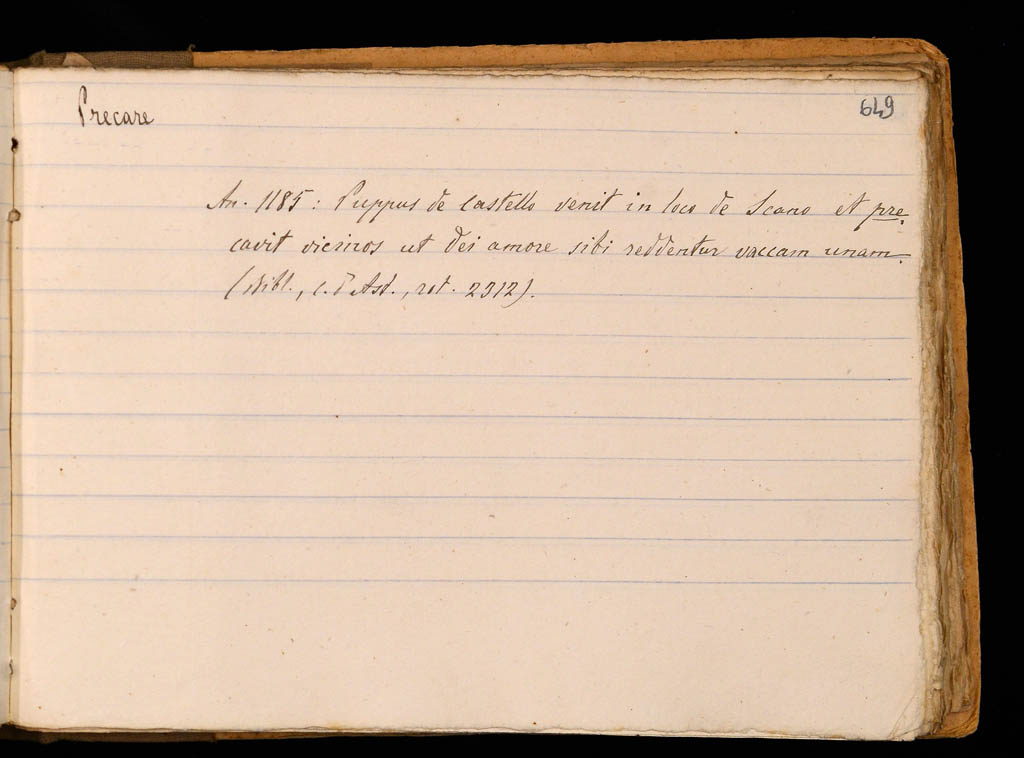 Precare
649
An. 1185: Puppus de Castello venit in loco de Scano et pre-
cavit vicinos ut dei amore sibi reddentur vaccam unam.
(Bibl., c. d'Ast., rot. 2312).